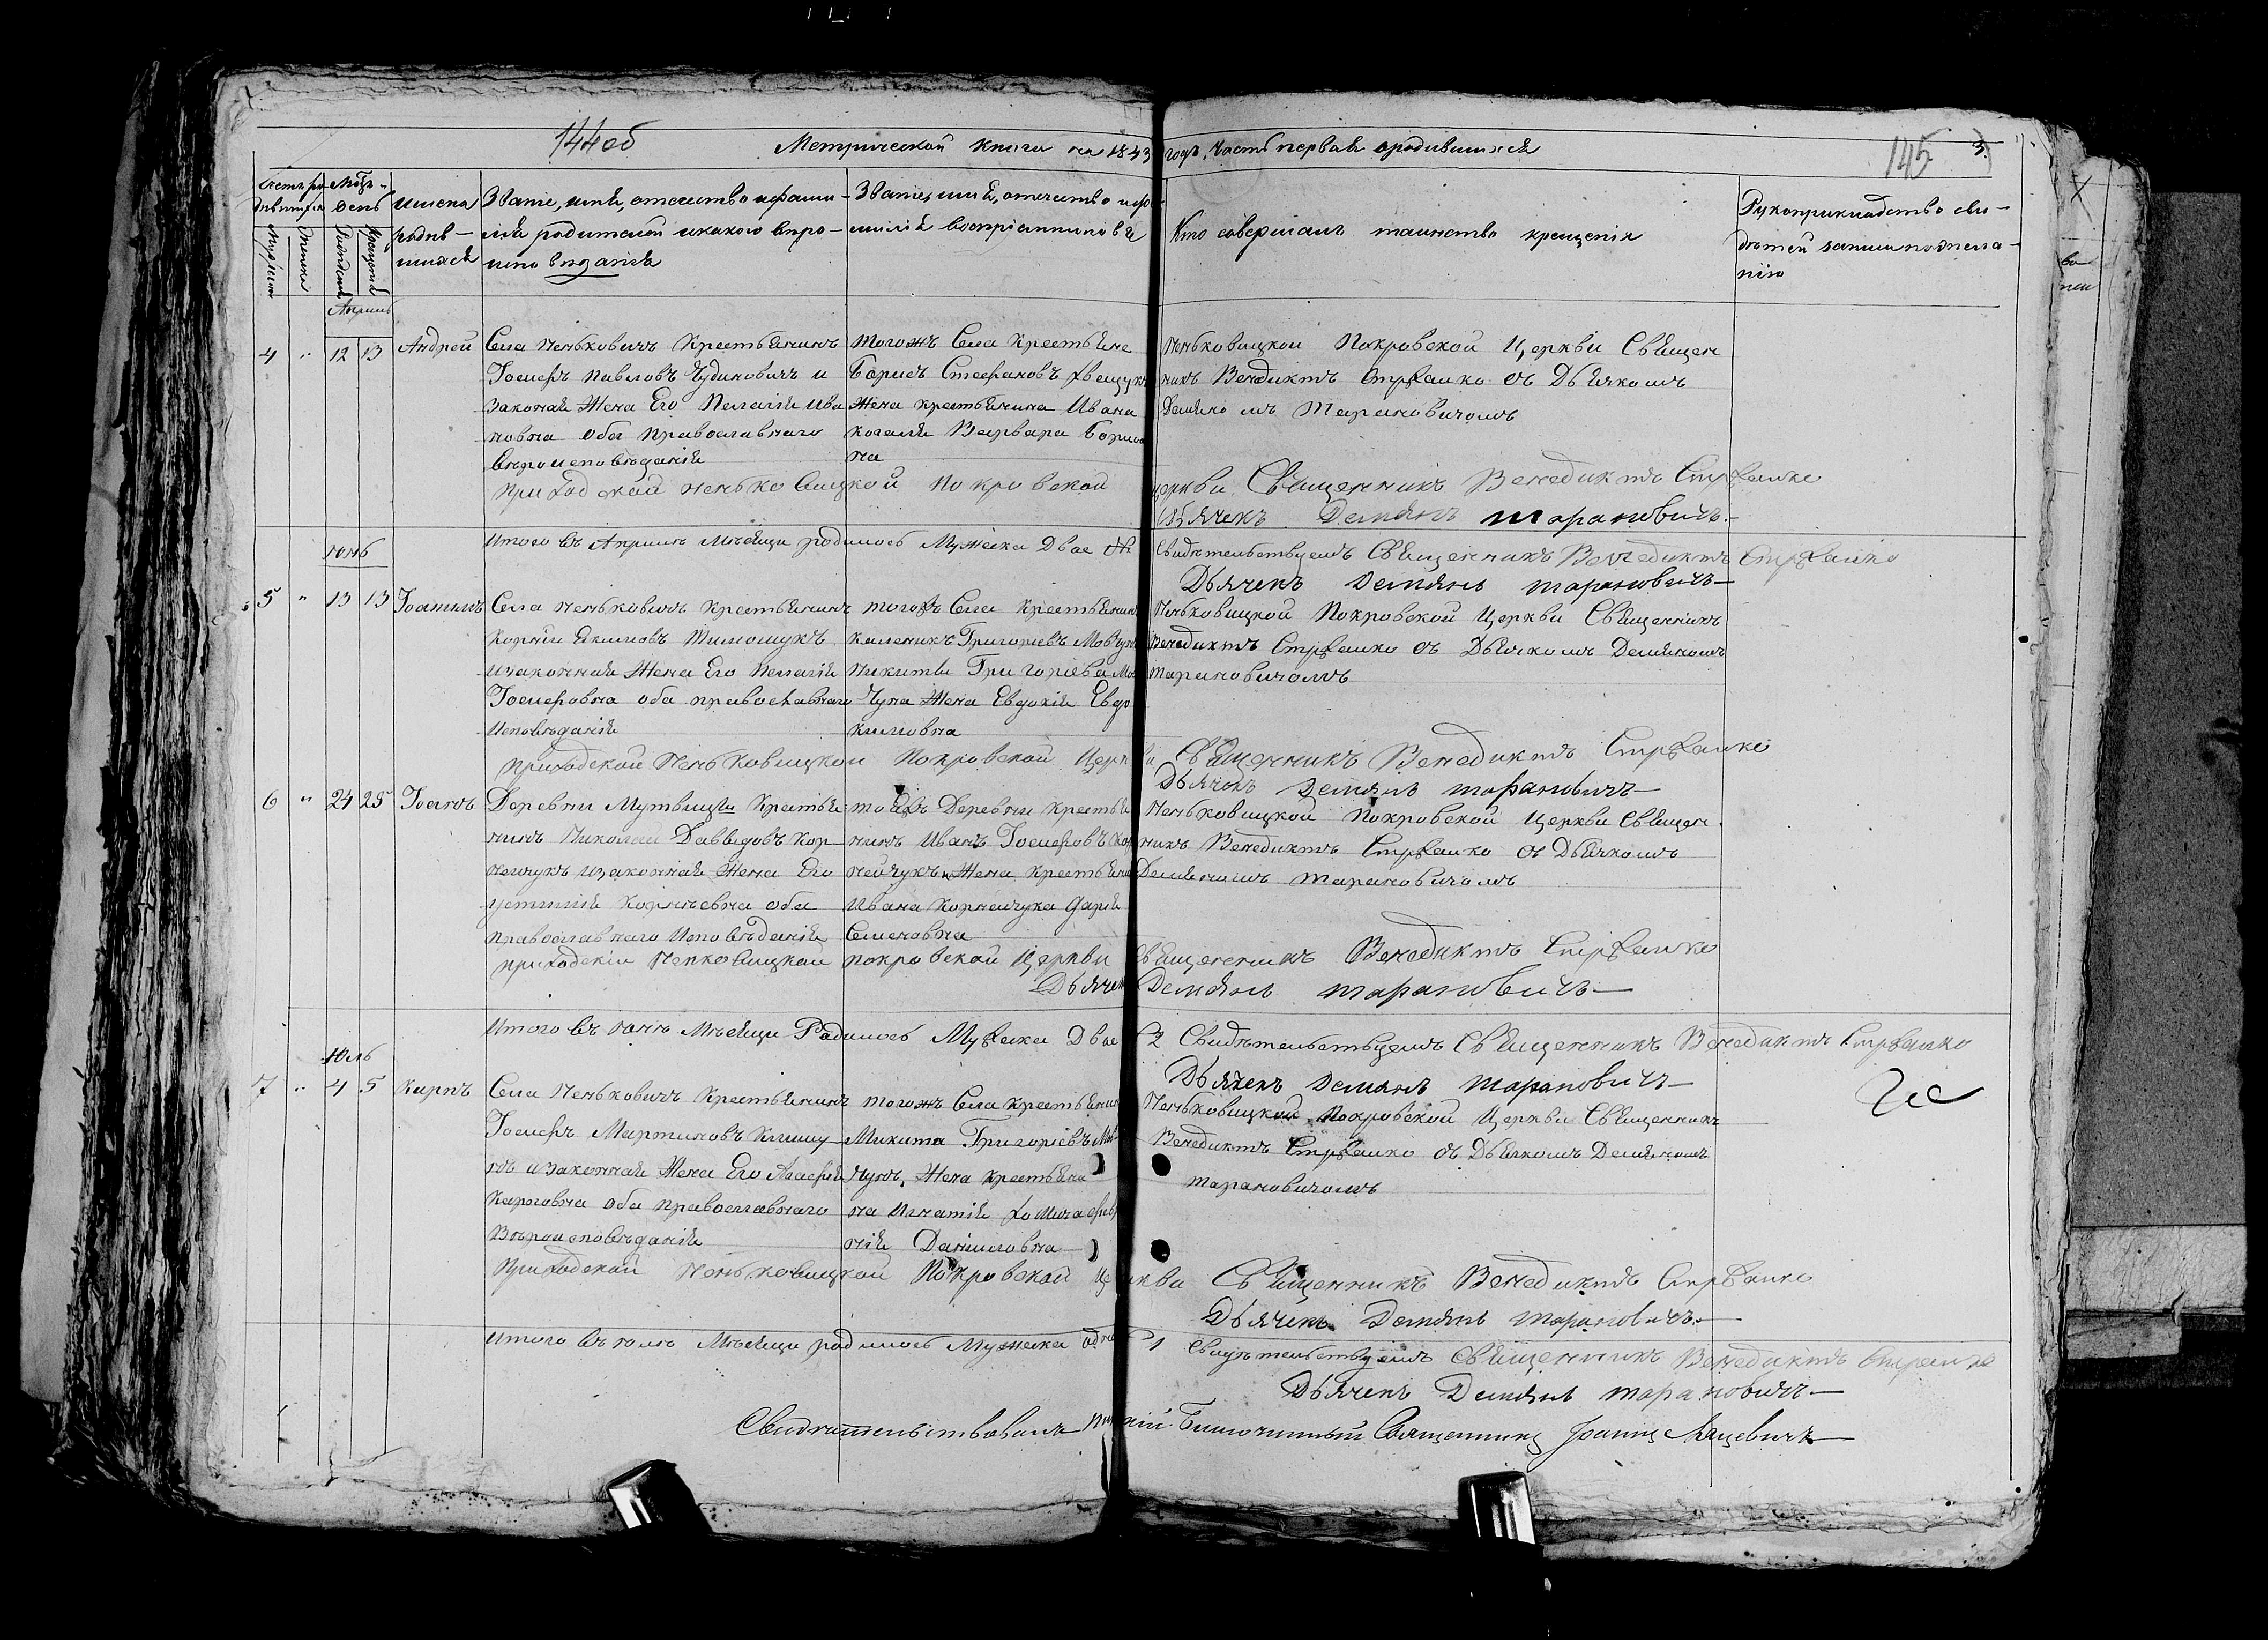 144об
Метрической книги на 1843 годъ, Часть первая о родившихся
145
3.
Счетъ родившихся
Мужеска
Женска
Мѣсяць и День
Рожденія
Крещенія
Имена родившихся
Званіе, имя, отчество и фамилія родителей и какого вѣроисповѣданія
Званіе, имя, отчество и фамилія воспріемниковъ
Кто совершалъ таинство крещенія
Рукоприкладство свидѣтелей записи по желанію
Апрель
4 " 12 13 Андрей
Села Пеньковичъ Крестьянинъ
Іосифъ Павловъ Чудиновичъ и
законая Жена Его Пелагія Ива
новна оба Православнаго
вѣроисповѣданія
тогожъ Села Крестьяне
Борисъ Стефановъ
Жена крестьянина Ивана
Варвара Борисо
на
Пеньковицкой Покровской Церкви Священ
никъ Венедиктъ Стржалко съ Дьячкомъ
Тарановичомъ
приходской Пеньковицкой Покровской церкви Священникъ Венедиктъ Стржалко
Дьячекъ Демянъ Тарановичъ.
Итого въ Априлѣ Мѣсяци родилось Мужеска Двае Свидѣтельствуемъ Священникъ Венедиктъ Стржалко
Дьячекъ Демянъ Тарановичъ
Юнь
5 " 13 13 Іоаннъ
Села Пеньковичъ Крестьянинъ
Корнѣй Якимовъ Тимошукъ
и законная Жена Его Пелагія
Іосифовна оба православнаго
Исповѣданія
тогожъ Села Крестьянинъ
Каленикъ Григоріевъ
Никиты Григоріева
Чуна Жена Евдокія Евдо
кимовна
Пеньковицкой Покровской Церкви Священникъ
Венедиктъ Стржалко съ Дьячкомъ Демяномъ
Тарановичомъ
приходской Пеньковицкой Покровской Церкви Священникъ Венедиктъ Стржалко
Дьячекъ Демянъ Тарановичъ
6 " 24 25 Іоаннъ
Деревни Мутвицы Крестья
нинъ Николай Давыдовъ Кор
нейчукъ и законная Жена Его
Устинія Корнѣевна оба
православнаго Исповѣданія
тояжъ Деревни Крестья
нинъ Иванъ Іосифовъ Кор
нейчукъ и Жена Крестьяни
Ивана Корнейчука Дарія
Семеновна
Пеньковицкой Покровской Церкви Священ
никъ Венедиктъ Стржалко съ Дьячкомъ
Демяномъ Тарановичомъ
приходскій Пеньковицкой Покровской Церкви Священникъ Венедиктъ Стржалко
Дьячекъ Демянъ Тарановичъ
Итого въ юнѣ Мѣсяци Родилось Мужеска Двае 2 Свидѣтельствуемъ Священникъ Венедиктъ Стржалко
Дьячекъ Демянъ Тарановичъ
Юль
7 " 4 5 Карпъ
Села Пеньковичъ Крестьянинъ
Іосифъ Мартиновъ
и законная Жена Его Агафія
Карповна оба православнаго
Вѣроисповѣданія
тогожъ Села Крестьянин
Микита Григоріевъ
Чунъ, Жена Крестьяни
на Игнатія Хомича
нія Даниловна
Пеньковицкой Покровской Церкви Священникъ
Венедиктъ Стржалко съ Дьячкомъ Демяномъ
Тарановичомъ
Приходской Пеньковицкой Покровской Церкви Священникъ Венедиктъ Стржалко
Дьячекъ Демянъ Тарановичъ.
Итого въ юлѣ Мѣсяци родилось Мужеска 1 Свидѣтельствуемъ Священникъ Венедиктъ Стржалко
Дьячекъ Демянъ Тарановичъ
Свидѣтельствовалъ Благочинный Священникъ Іоаннъ